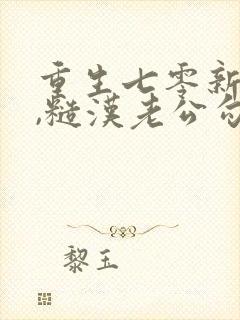 重生七零新
,糙漢老公勾
黎玉